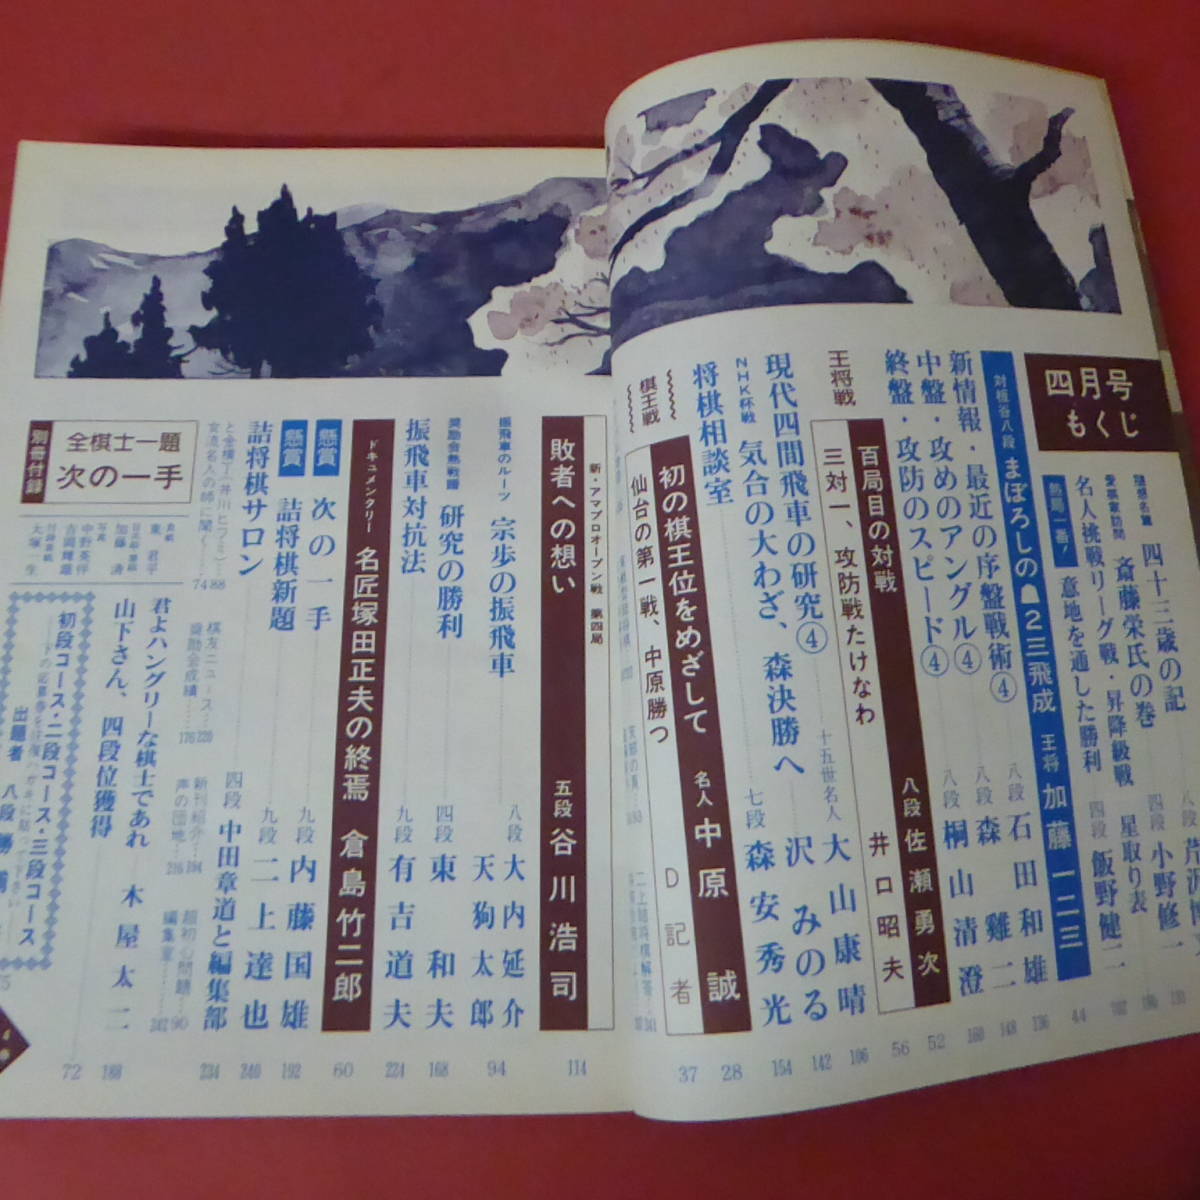 四月号
もくじ
四十三歳の記
愛棋家訪問 斎藤栄氏の巻 四段 小野修一
名人挑戦リーグ戦・昇降級戦 星取り表
熱局一番! 意地を通した勝利 四段 飯野健二 44
対板谷八段 まぼろしの☗2三飛成 王将 加藤一二三
新情報・最近の序盤戦術④ 八段 石田和雄 196
中盤・攻めのアングル④ 八段 森雞二 148
終盤・攻防のスピード④ 八段 桐山清澄 160
王将戦
百局目の対戦 八段 佐瀬勇次 52
三対一、攻防戦たけなわ 井口昭夫 56
現代四間飛車の研究④ 十五世名人 大山康晴 106
NHK杯戦 気合の大わざ、森決勝へ 沢みのる 142
将棋相談室 七段 森安秀光 154
棋王戦
初の棋王位をめざして 名人 中原誠 28
仙台の第一戦、中原勝つ D記者 37
新・アマプロオープン戦 第四局
敗者への想い 五段 谷川浩司 114
振飛車のルーツ 宗歩の振飛車 八段 大内延介
天狗太郎 94
奨励会熱戦譜 研究の勝利 四段 東和夫 168
振飛車対抗法 九段 有吉道夫 224
ドキュメンタリー 名匠塚田正夫の終焉 倉島竹二郎 60
懸賞 次の一手 九段 内藤国雄 192
懸賞 詰将棋新題 九段 二上達也 240
詰将棋サロン 四段 中田章道と編集部 234
棋友ニュース 220
奨励会成績 176
新刊紹介 194
声の団地 216
超初心問題 90
編集室 242
君よハングリーな棋士であれ 木屋太二
山下さん、四段位獲得 72
別冊付録
全棋士一題
次の一手
初段コース・二段コース・三段コース
出題者 八段 勝浦